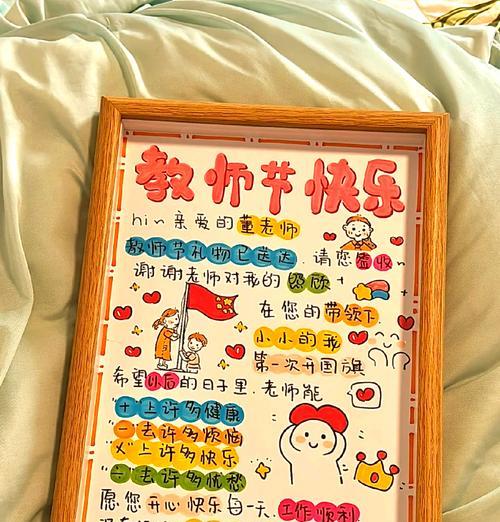 教师节快乐
hi~亲爱的董老师
教师节礼物已送达.请您签收~
谢谢老师对我的照顾
在您的带领下
小小的我
第一次升国旗
希望以后的日子里.老师能
"+"上许多健康
"-"去许多烦恼
"×"上许多快乐
"÷"去许多忧愁
愿您开心快乐每一天.工作顺利